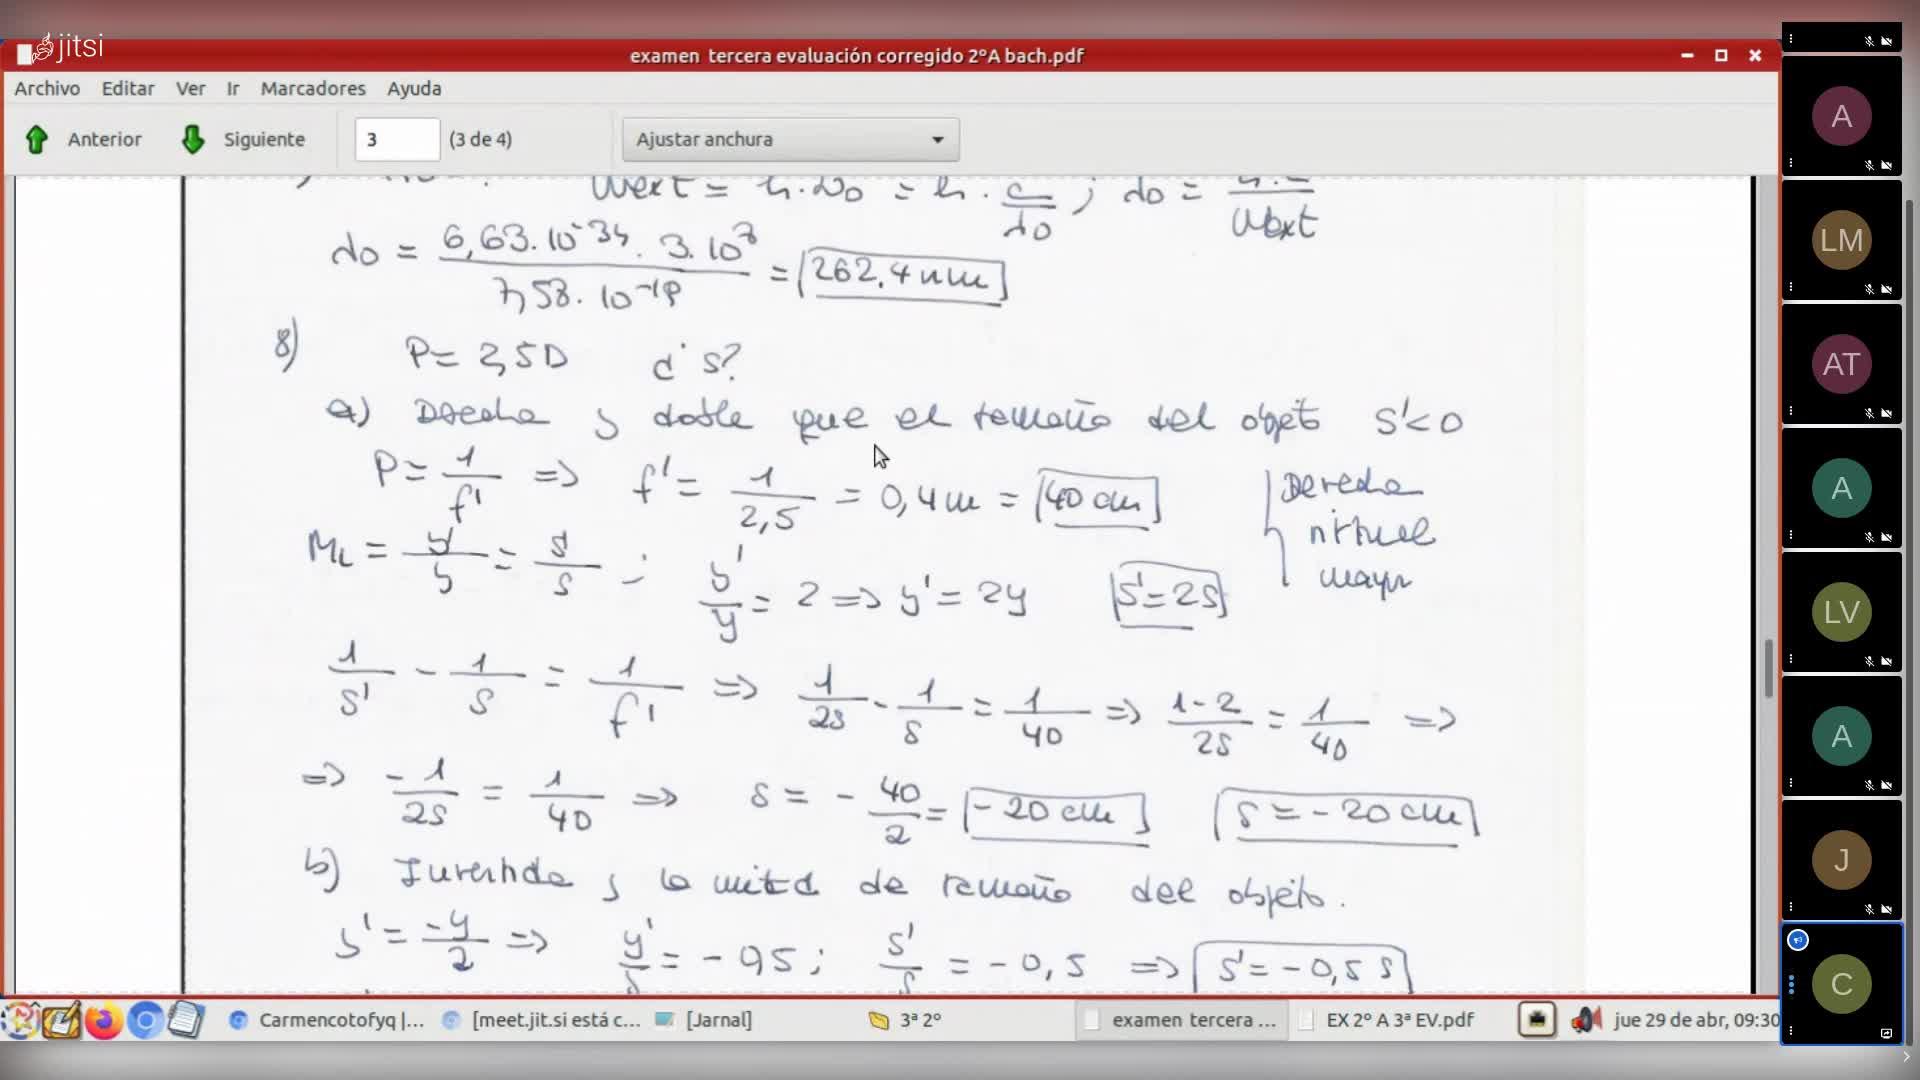 jitsi
examen tercera evaluación corregido 2ºA bach.pdf
Archivo Editar Ver Ir Marcadores Ayuda
Anterior Siguiente 3 (3 de 4) Ajustar anchura
Wext = h.ν0 = h . c/λ0 ; λ0 = /Wext
λ0 = 6,63.10^-34 . 3.10^8 / 7,58.10^-19 = 262,4 nm
8) P= 2,5D ¿ s?
a) Derecha y doble que el tamaño del objeto s'<0
P= 1/f' => f' = 1/2,5 = 0,4 m = 40 cm
Derecha
virtual
mayor
ML = y'/y = s'/s ; y'/y = 2 => y' = 2y s'=2s
1/s' - 1/s = 1/f' => 1/2s - 1/s = 1/40 => 1-2/2s = 1/40 =>
=> -1/2s = 1/40 => s = - 40/2 = -20 cm s = -20 cm
b) Invertida y la mitad de tamaño del objeto.
y' = -y/2 => y'/y = -0,5 ; s'/s = -0,5 => s'= -0,5 s
Carmencotofyq |... [meet.jit.si está c... [Jarnal] 3ª 2º examen tercera ... EX 2º A 3ª EV.pdf jue 29 de abr, 09:30
A
LM
AT
A
LV
A
J
C